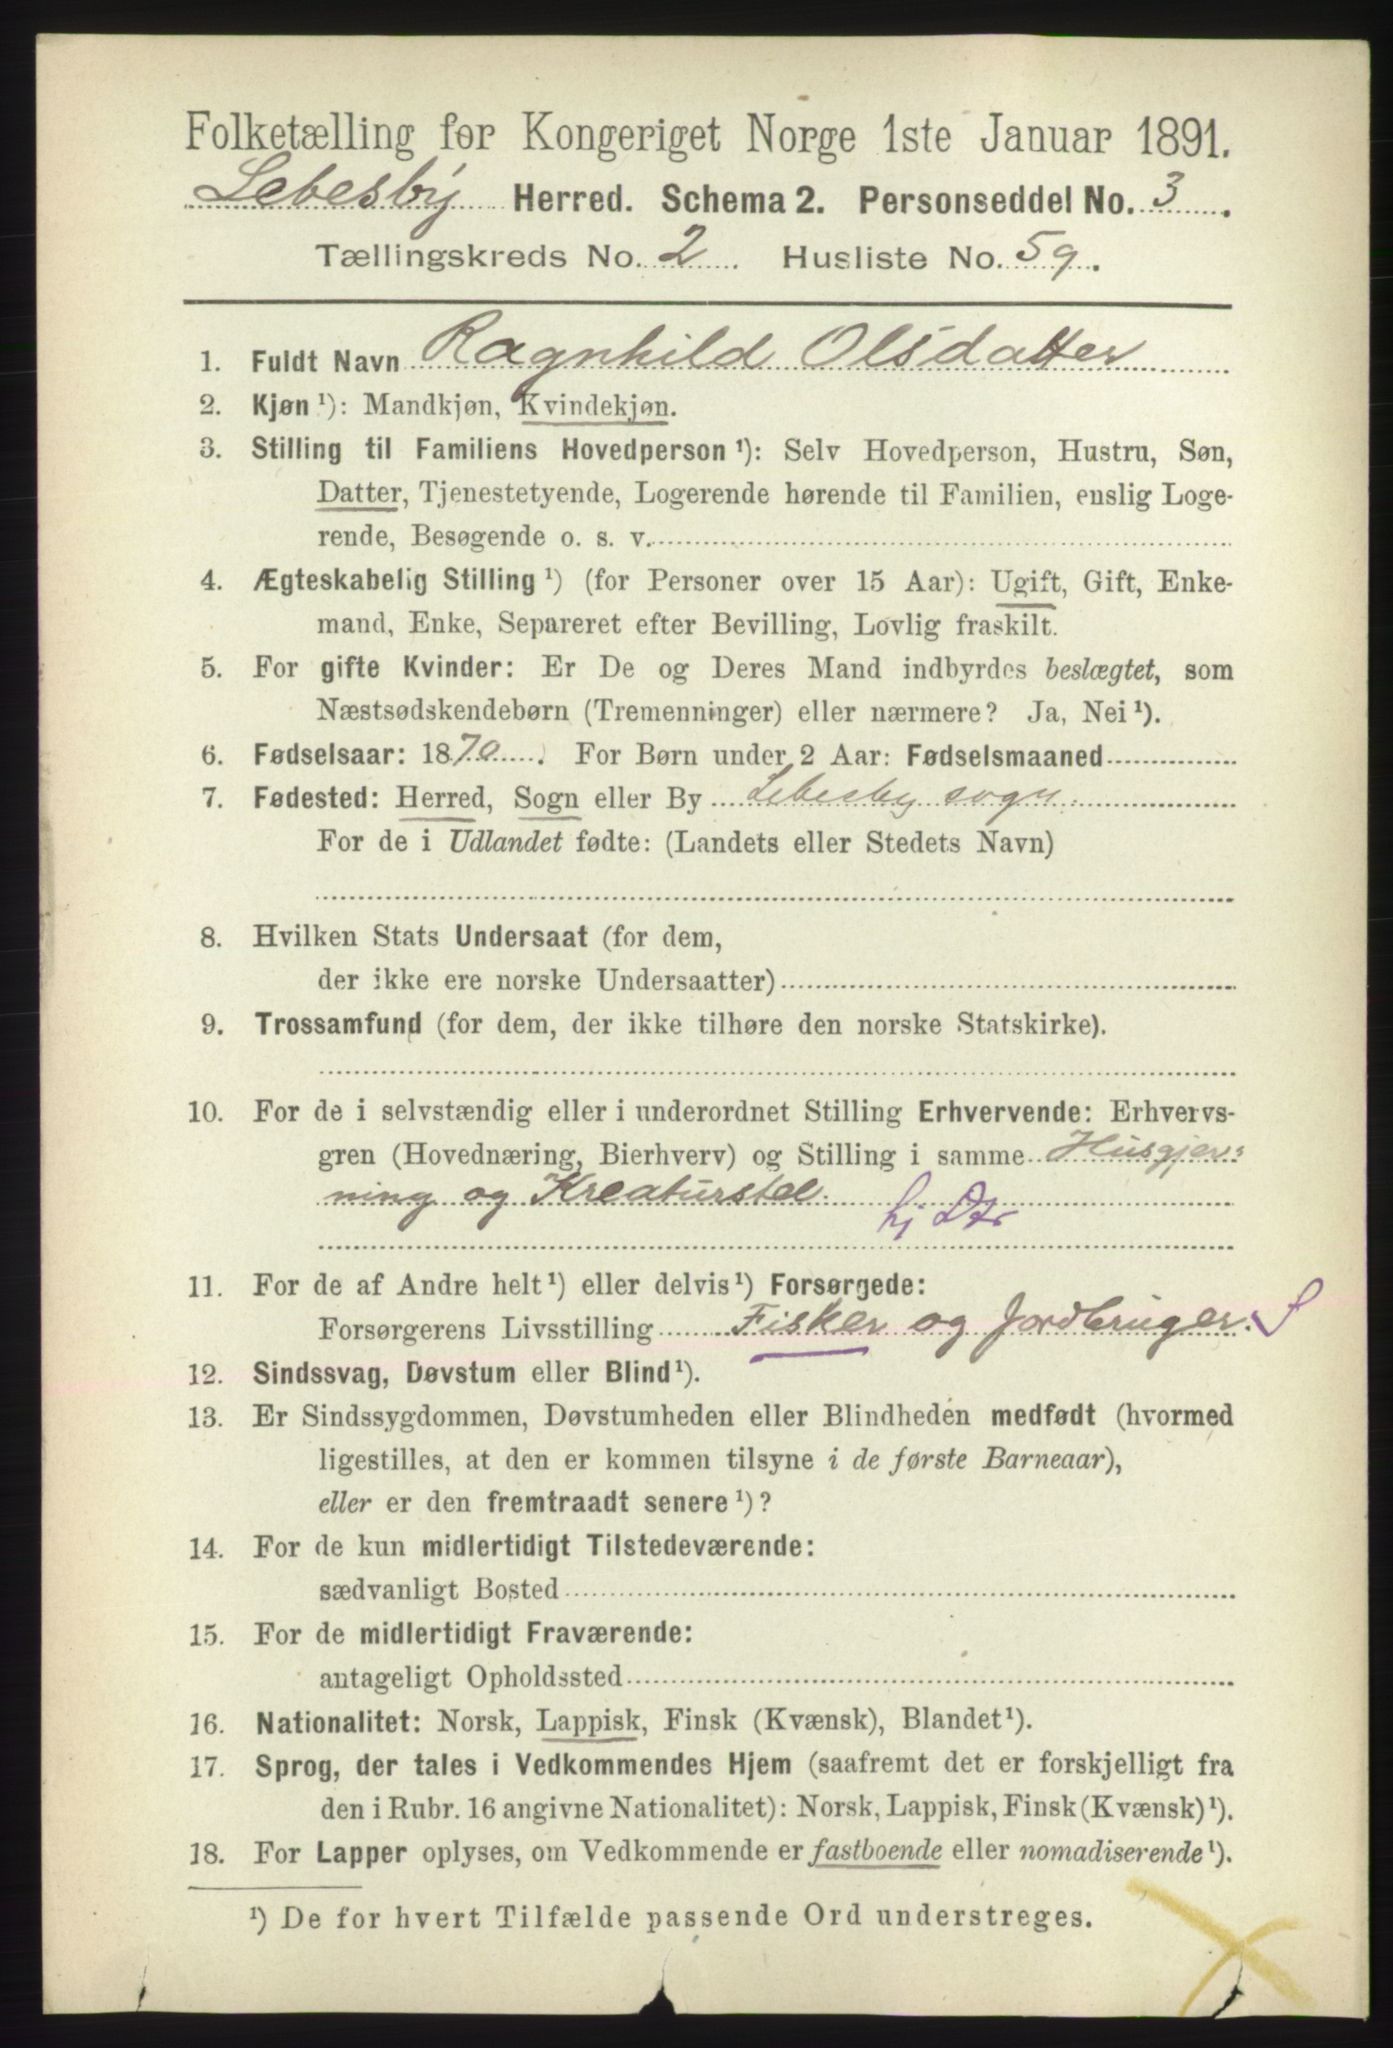 Folketælling for Kongeriget Norge 1ste Januar 1891.
Lebesby Herred. Schema 2. Personseddel No. 3.
Tællingskreds No. 2. Husliste No. 59.
1. Fuldt Navn Ragnhild Olsdatter
2. Kjøn ¹): Mandkjøn, Kvindekjøn.
3. Stilling til Familiens Hovedperson ¹): Selv Hovedperson, Hustru, Søn,
Datter, Tjenestetyende, Logerende hørende til Familien, enslig Loge-
rende, Besøgende o. s. v.
4. Ægteskabelig Stilling ¹) (for Personer over 15 Aar): Ugift, Gift, Enke-
mand, Enke, Separeret efter Bevilling, Lovlig fraskilt.
5. For gifte Kvinder: Er De og Deres Mand indbyrdes beslægtet, som
Næstsødskendebørn (Tremenninger) eller nærmere? Ja, Nei ¹).
6. Fødselsaar: 1870. For Børn under 2 Aar: Fødselsmaaned
7. Fødested: Herred, Sogn eller By Lebesby sogn.
For de i Udlandet fødte: (Landets eller Stedets Navn)
8. Hvilken Stats Undersaat (for dem,
der ikke ere norske Undersaatter)
9. Trossamfund (for dem, der ikke tilhøre den norske Statskirke).
10. For de i selvstændig eller i underordnet Stilling Erhvervende: Erhvervs-
gren (Hovednæring, Bierhverv) og Stilling i samme Husgjer-
ning og Kreaturstel.
hj Dtr
11. For de af Andre helt ¹) eller delvis ¹) Forsørgede:
Forsørgerens Livsstilling Fisker og Jordbruger. S
12. Sindssvag, Døvstum eller Blind ¹).
13. Er Sindssygdommen, Døvstumheden eller Blindheden medfødt (hvormed
ligestilles, at den er kommen tilsyne i de første Barneaar),
eller er den fremtraadt senere ¹)?
14. For de kun midlertidigt Tilstedeværende:
sædvanligt Bosted
15. For de midlertidigt Fraværende:
antageligt Opholdssted
16. Nationalitet: Norsk, Lappisk, Finsk (Kvænsk), Blandet ¹).
17. Sprog, der tales i Vedkommendes Hjem (saafremt det er forskjelligt fra
den i Rubr. 16 angivne Nationalitet): Norsk, Lappisk, Finsk (Kvænsk) ¹).
18. For Lapper oplyses, om Vedkommende er fastboende eller nomadiserende ¹).
¹) De for hvert Tilfælde passende Ord understreges.